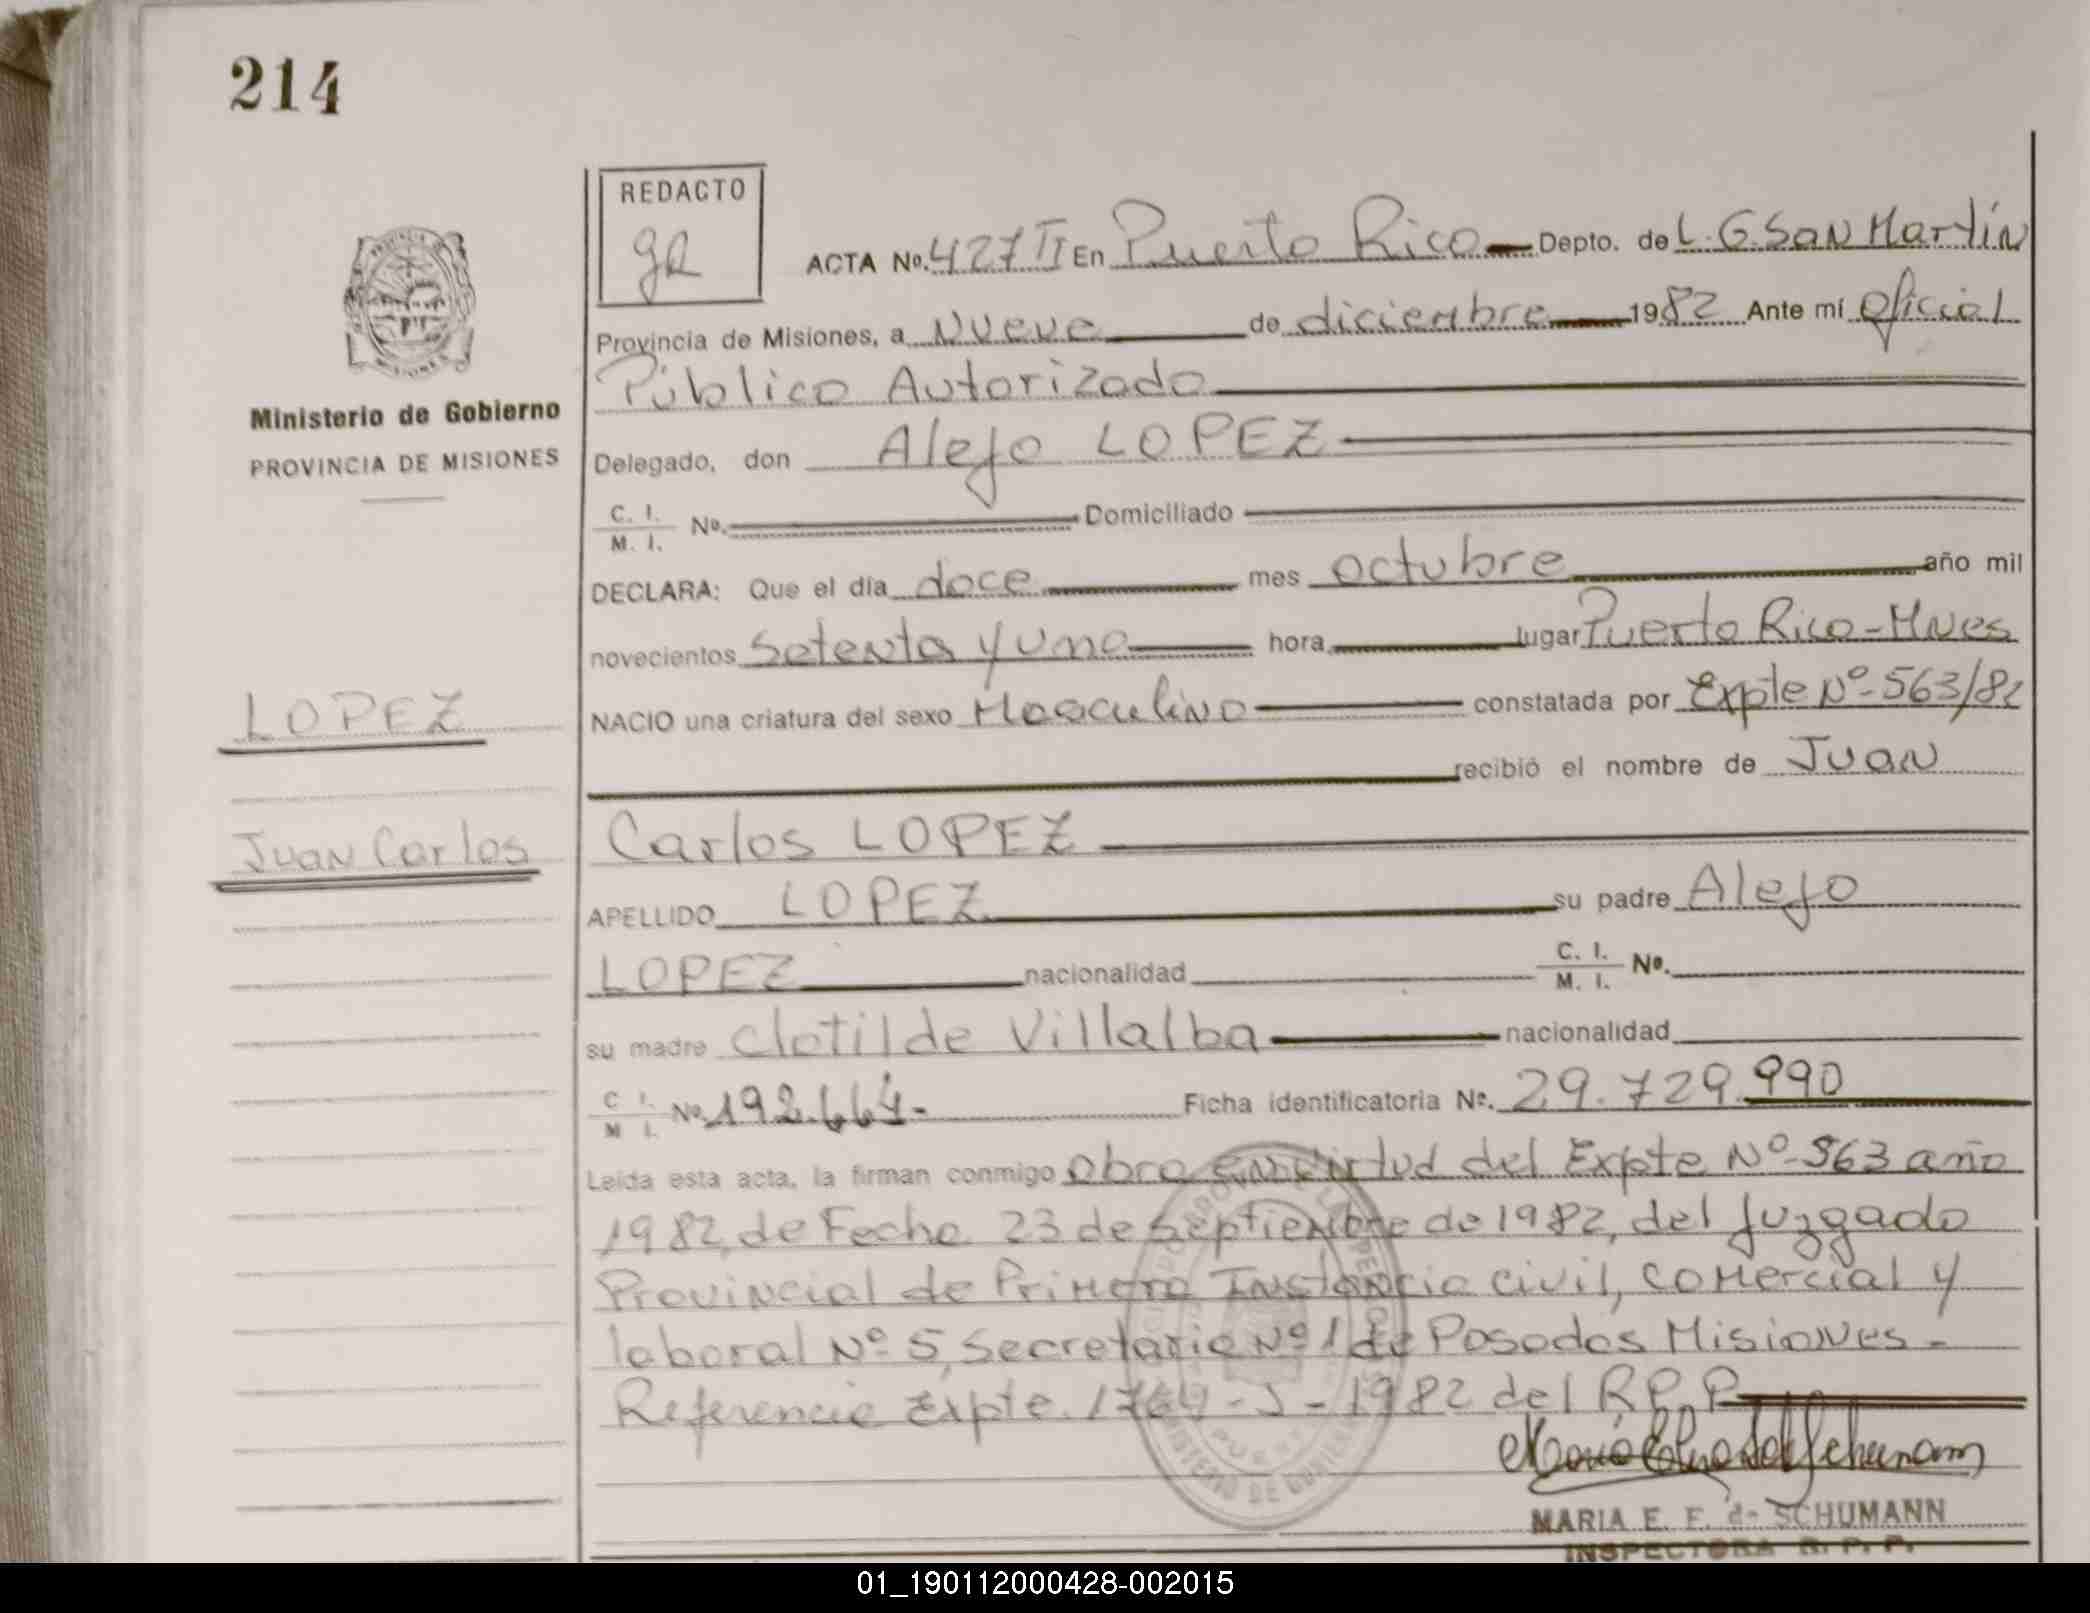 214
REDACTO
gR
ACTA Nº. 427 II En Puerto Rico Depto. de L. G. San Martín
Provincia de Misiones, a nueve de diciembre 1982 Ante mí Oficial
Público Autorizado
Ministerio de Gobierno
PROVINCIA DE MISIONES
Delegado, don Alejo LOPEZ
C. I.
M. I. Nº. Domiciliado
DECLARA: Que el día doce mes octubre año mil
novecientos setenta y uno hora lugar Puerto Rico-Mnes
NACIO una criatura del sexo Masculino constatada por Expte Nº-563/82
LOPEZ
recibió el nombre de Juan
Juan Carlos
Carlos LOPEZ
APELLIDO LOPEZ su padre Alejo
LOPEZ nacionalidad C. I.
M. I. Nº.
su madre Clotilde Villalba nacionalidad
C. I.
M. I. Nº. 192.664- Ficha identificatoria Nº. 29.729.990
Leída esta acta, la firman conmigo obra en virtud del Expte Nº-563 año
1982, de Fecha 23 de septiembre de 1982, del Juzgado
Provincial de Primera Instancia Civil, Comercial y
laboral Nº 5, Secretaria Nº 1 de Posadas Misiones-
Referencia Expte. 1764-J-1982 del R.P.P
MARIA E. F. de SCHUMANN
INSPECTORA R. P. P.
01_190112000428-002015